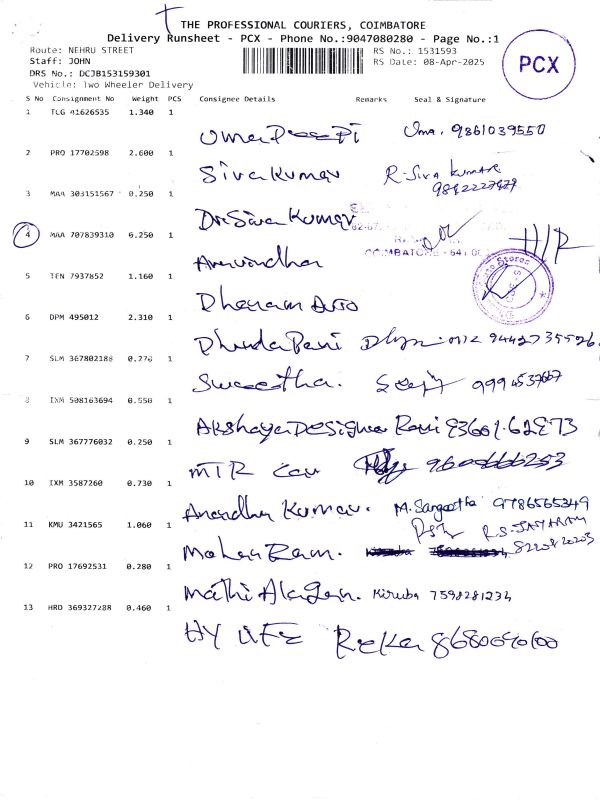 THE PROFESSIONAL COURIERS, COIMBATORE
Delivery Runsheet - PCX - Phone No.:9047080280 - Page No.:1
Route: NEHRU STREET
RS No.: 1531593
Staff: JOHN
RS Date: 08-Apr-2025
DRS No.: DCJB153159301
Vehicle: Two Wheeler Delivery
PCX
S No Consignment No Weight PCS Consignee Details Remarks Seal & Signature
1 TCG 41626535 1.340 1
Uma Uma. 9861039550
2 PRO 17702598 2.600 1
Sivakumar R. Siva kumar
3 MAA 303151567 0.250 1
Dr. Siva Kumar
COIMBATORE - 641
4 MAA 707839310 6.250 1
Aravindhan
Stores
5 TEN 7937852 1.160 1
Dhanam Auto
6 DPM 495012 2.310 1
DhandaPani
7 SLM 367802188 0.270 1
Swetha.
8 IXM 508163694 0.550 1
Akshaya Designer Ravi
9 SLM 367776032 0.250 1
MTR
10 IXM 3587260 0.730 1
Anandha Kumar. M. Sangeetha 9786565349
R.S. JAYARAM
11 KMU 3421565 1.060 1
Mohan Ram.
12 PRO 17692531 0.280 1
Mathi Alagan. Kiruba 7598281234
13 HRD 369327288 0.460 1
HY LIFE Reka 8680040100